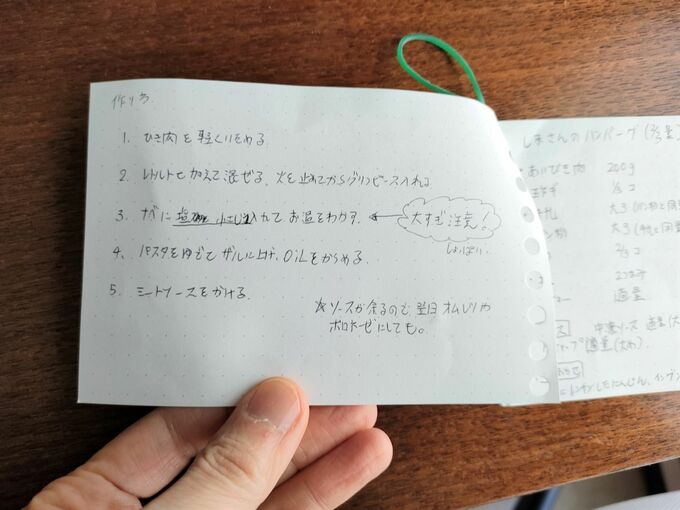 作り方
1. ひき肉を軽くいためる
2. レトルトを加えて混ぜる、火を止めてからグリンピース入れる
3. ナベに塩 小さじ1入れてお湯をわかす。
大すぎ注意!
しょっぱい
4. パスタをゆでてザルに上げ、OiLをからめる。
5. ミートソースをかける。
※ソースが余るので、翌日オムレツや
ボロネーゼにしても。
しまさんのハンバーグ(2/3量)
あいびき肉 200g
1/3コ
大3
大3
2/3コ
適量
中濃ソース 適量
適量(大わ)
したにんじん、インゲン